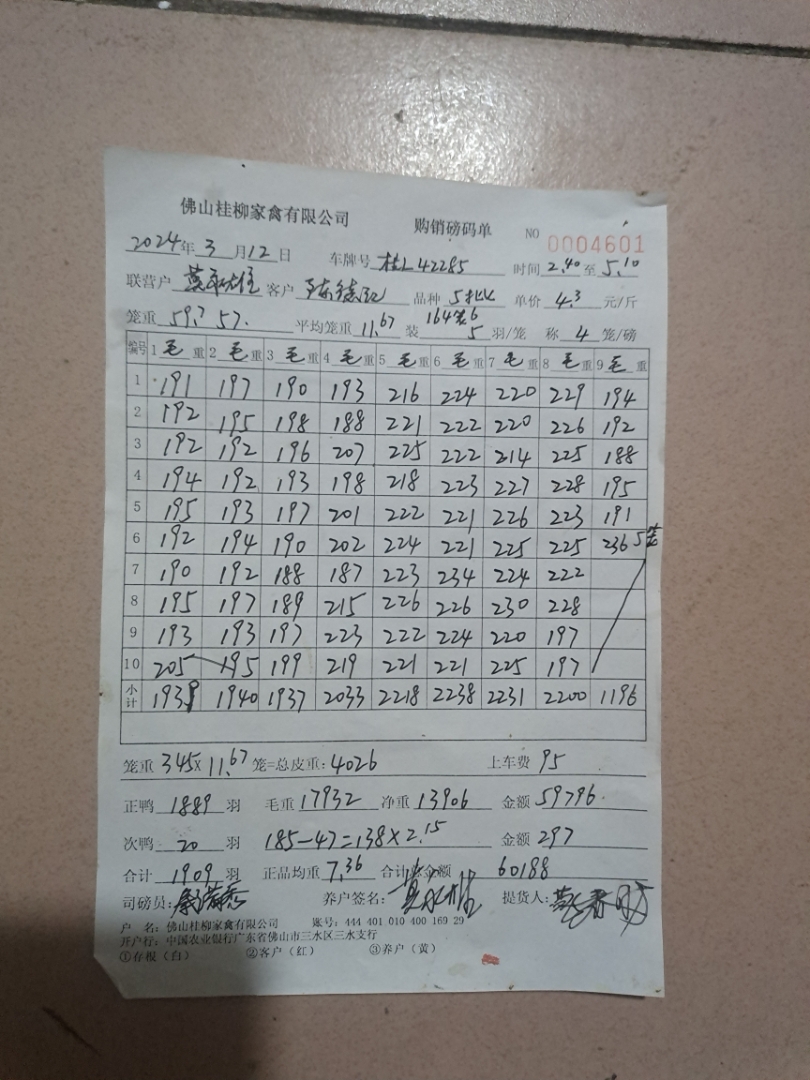 佛山桂柳家禽有限公司 购销磅码单 NO 0004601
2024年3月12日 车牌号 桂L42285 时间 2.40 至 5.10
联营户 客户 品种 单价 4.3 元/斤
笼重 59.7 57. 平均笼重 11.67 装 164笼6 5 羽/笼 称 4 笼/磅
编号 1 毛 重 2 毛 重 3 毛 重 4 毛 重 5 毛 重 6 毛 重 7 毛 重 8 毛 重 9 毛 重
1 191 197 190 193 216 224 220 229 194
2 192 195 198 188 221 222 220 226 192
3 192 192 196 207 225 222 214 225 188
4 194 192 193 198 218 223 227 228 195
5 195 193 197 201 222 221 226 223 191
6 192 194 190 202 224 221 225 225 236 5笼
7 190 192 188 187 223 234 224 222
8 195 197 189 215 226 226 230 228
9 193 193 197 223 222 224 220 197
10 205 195 199 219 221 221 225 197
小计 1939 1940 1937 2033 2218 2238 2231 2200 1196
笼重 345×11.67 笼=总皮重: 4026 上车费 95
正鸭 1889 羽 毛重 17932 净重 13906 金额 59796
次鸭 20 羽 185-47=138×2.15 金额 297
合计 1909 羽 正品均重 7.36 合计总金额 60188
司磅员: 养户签名: 提货人:
户 名: 佛山桂柳家禽有限公司 账号: 444 401 010 400 169 29
开户行: 中国农业银行广东省佛山市三水区三水支行
①存根(白) ②客户(红) ③养户(黄)